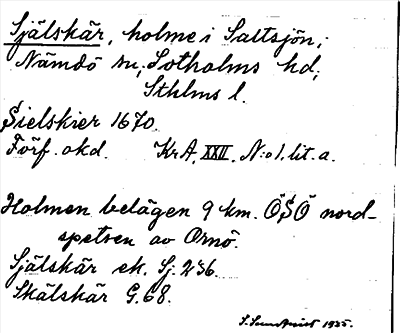 Själskär, holme i Saltsjön,
Nämdö sn, Sotholms hd,
Sthlms l.
Sielskier 1670.
Förf. okd. KrA, XXII. N:o 1. lit. a.
Holmen belägen 9 km. ÖSÖ nord-
spetsen av Ornö.
Själskär ek. Sj. 236.
Skälskär G. 68.
S. Sundqvist 1935.